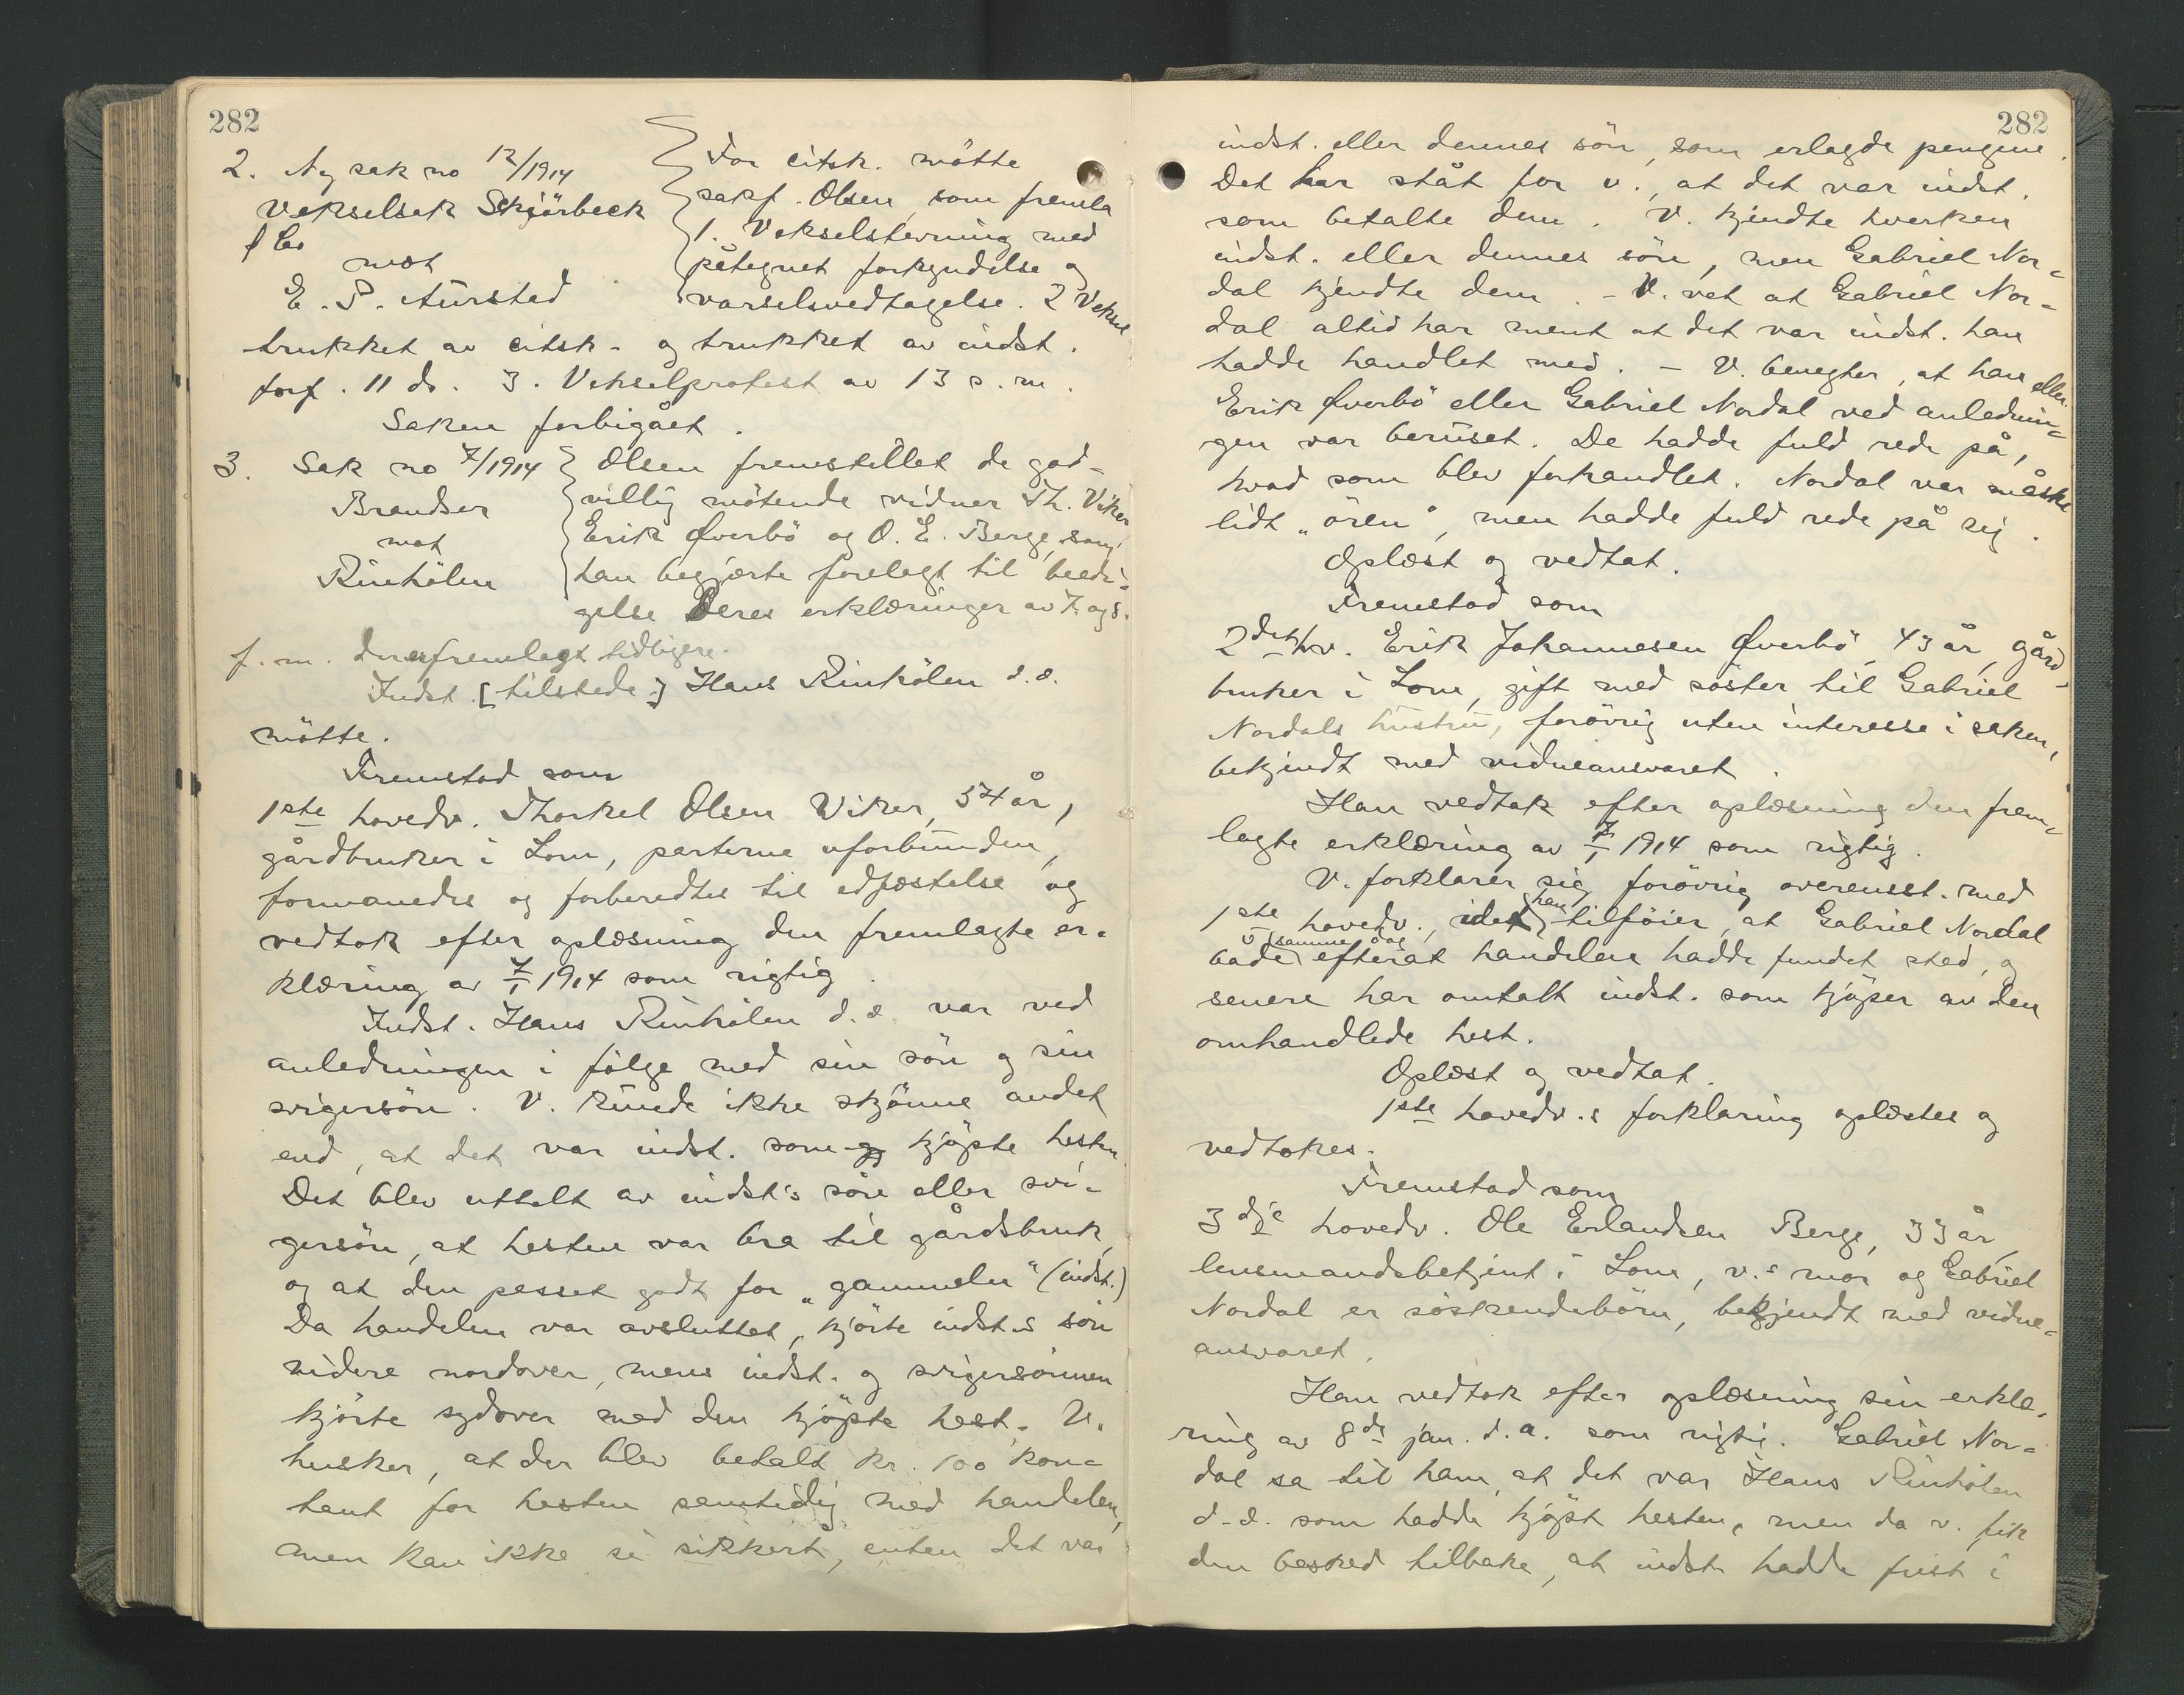 282
2. Ny sak no 12/1914
Vekselsak Skjörbeck
& Co
mot
E. P. Aurstad
For citsk. mötte
sakf. Olsen, som fremla
1. Vekselstevning med
påtegnet forkyndelse og
varselsvedtagelse. 2 Veksel
trukket av citsk. og trukket av indst.
forf. 11 ds. 3. Vekselprotest av 13 s. m.
Saken forbigået.
3. Sak no 7/1914
Brandser
mot
Rinhölen
Olsen fremstillet de god-
villig mötende vidner Th. Viker
Erik Øverbö og O. E. Berge, som
han begjærte forelagt til beedi-
gelse Deres erklæringer av 7. og 8.
f. m. fremlagt tidligere.
Indst. [tilstede:] Hans Rinhölen d.e.
mötte.
Fremstod som
1ste hovedv. Thorkel Olsen Viker, 54 år,
gårdbruker i Lom, parterne uforbunden,
formanedes og forberedtes til edfæstelse og
vedtok efter oplæsning den fremlagte er-
klæring av 7/1 1914 som rigtig.
Indst. Hans Rinhölen d.e. var ved
anledningen i fölge med sin sön og sin
svigersön. V. kunde ikke skjönne andet
end, at det var indst. som kjöpte hesten.
Det blev uttalt av indst's sön eller svi-
gersön, at hesten var bra til gårdsbruk,
og at den passet godt for "gammeln" (indst.)
Da handelen var avsluttet, kjörte indst.s sön
videre nordover, mens indst. og svigersönnen
kjörte sydover med den kjöpte hest. V.
husker, at der blev betalt kr. 100 kon-
tant for hesten samtidig med handelen,
men kan ikke si sikkert, enten det var
282
indst. eller dennes sön, som erlagde pengene.
Det har ståt for v., at det var indst.
som betalte dem. V. kjendte hverken
indst. eller dennes sön, men Gabriel Nor-
dal kjendte dem. - V. vet at Gabriel Nor-
dal altid har ment at det var indst. han
hadde handlet med. - V. benegter, at han eller
Erik Øverbö eller Gabriel Nordal ved anlednin-
gen var beruset. De hadde fuld rede på,
hvad som blev forhandlet. Nordal var måske
lidt "ören", men hadde fuld rede på sig.
Oplæst og vedtat.
Fremstod som
2det hv. Erik Johannesen Øverbö, 43 år, gård-
bruker i Lom, gift med söster til Gabriel
Nordals hustru, forövrig uten interesse i saken,
bekjendt med vidneansvaret.
Han vedtok efter oplæsning den frem-
lagte erklæring av 7/1 1914 som rigtig.
V. forklarer sig forövrig overensst. med
1ste hovedv., idet han tilföier, at Gabriel Nordal
både samme dag efterat handelen hadde fundet sted, og
senere har omtalt indst. som kjöper av den
omhandlede hest.
Oplæst og vedtat.
1ste hovedv.s forklaring oplæstes og
vedtokes.
Fremstod som
3dje hovedv. Ole Erlandsen Berge, 33 år,
lensmandsbetjent i Lom, v.s mor og Gabriel
Nordal er söskendebörn, bekjendt med vidne-
ansvaret.
Han vedtok efter oplæsning sin erklæ-
ring av 8de jan. d.a. som rigtig. Gabriel Nor-
dal sa til ham, at det var Hans Rinhölen
d.e. som hadde kjöpt hesten, men da v. fik
den besked tilbake, at indst. hadde frist i